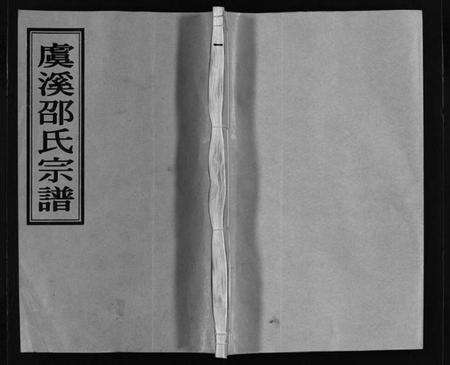 虞溪邵氏宗譜